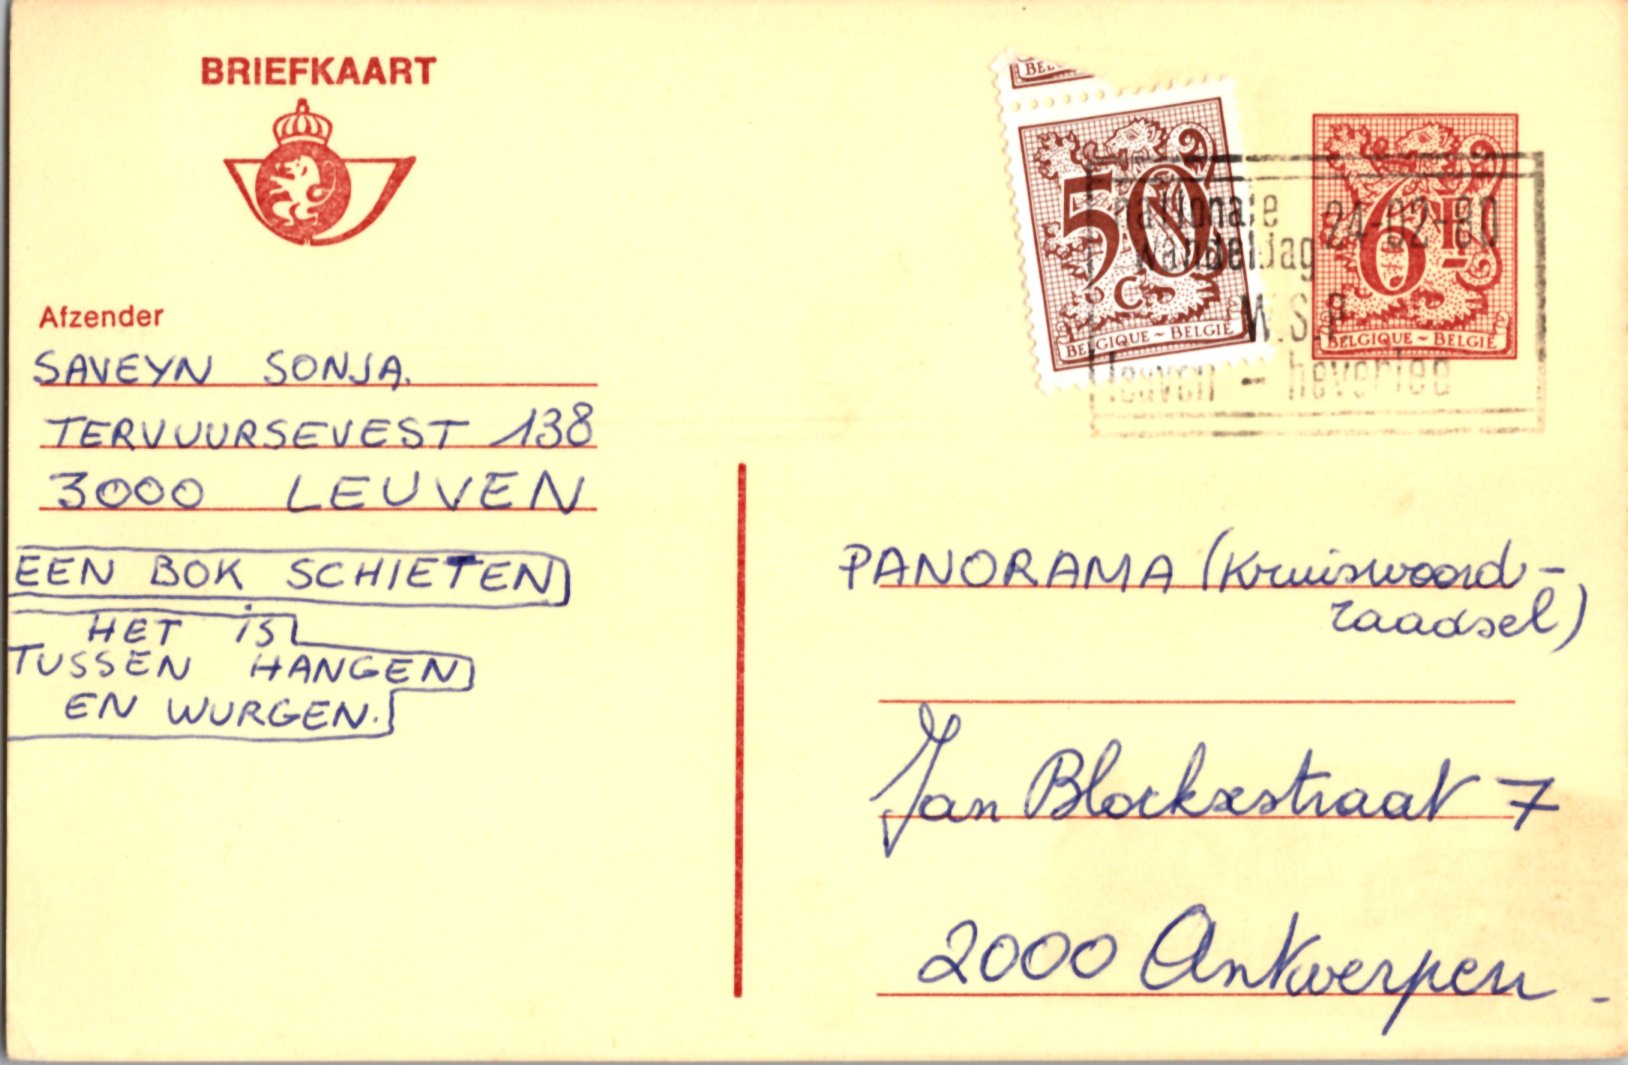 BRIEFKAART
Afzender
SAVEYN SONJA.
TERVUURSEVEST 138
3000 LEUVEN
EEN BOK SCHIETEN
HET iS
TUSSEN HANGEN
EN WURGEN.
BELG
50
C
BELGIQUE ~ BELGIË
6F
BELGIQUE ~ BELGIË
nationale
wandeldag
24-02-80
W.S.P
leuven - heverlee
PANORAMA (Kruiswoord-
raadsel)
Jan Blockxstraat 7
2000 Antwerpen -